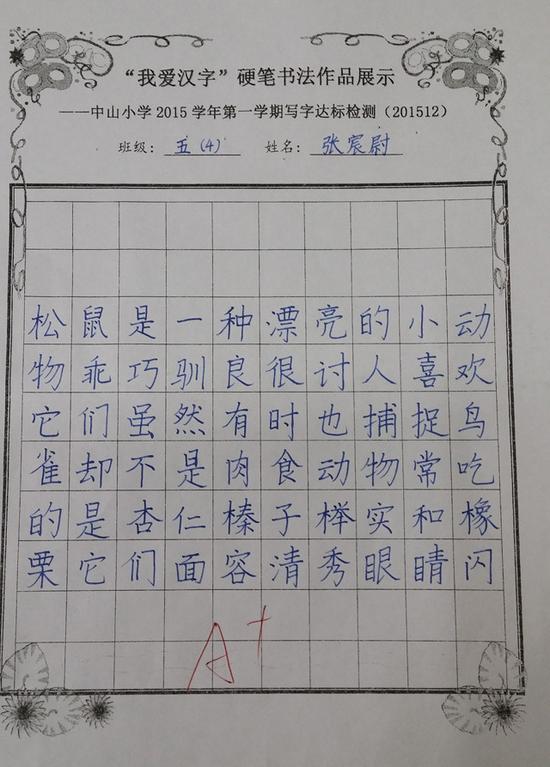 “我爱汉字”硬笔书法作品展示
——中山小学2015学年第一学期写字达标检测（201512）
班级：五（4） 姓名：张宸尉
松鼠是一种漂亮的小动
物乖巧驯良很讨人喜欢
它们虽然有时也捕捉鸟
雀却不是肉食动物常吃
的是杏仁榛子榉实和橡
栗它们面容清秀眼睛闪
A+